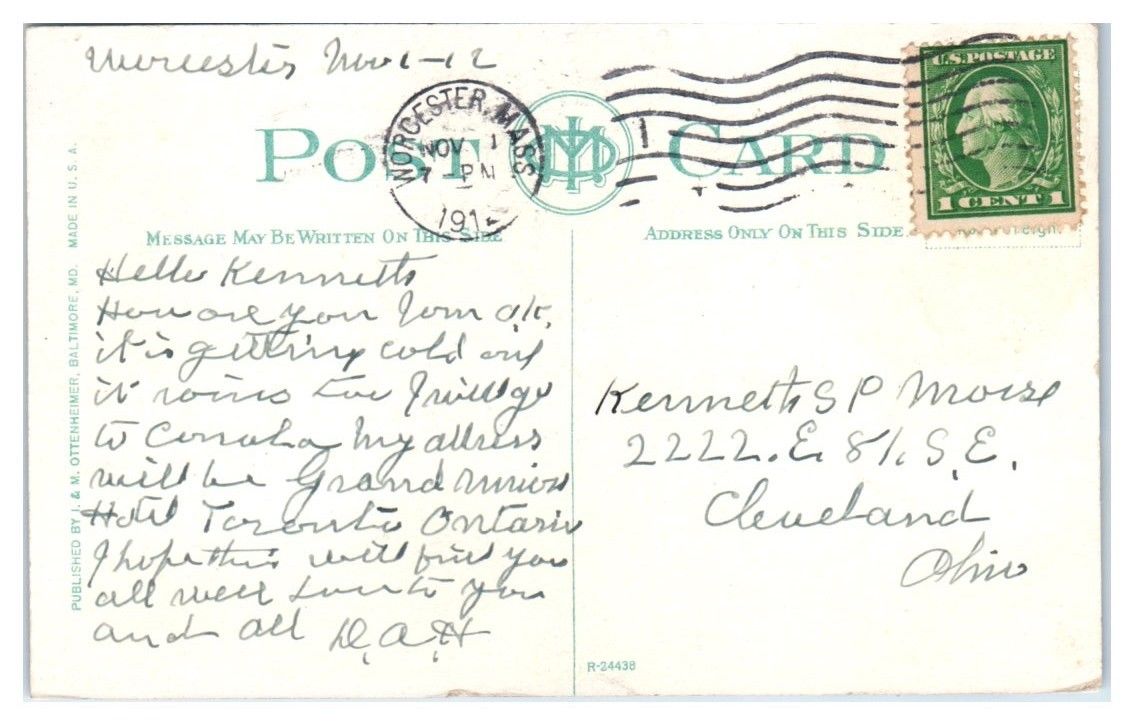 Worcester Nov 1-12
POST CARD
WORCESTER, MASS
NOV 1
7 - PM
1912
U.S. POSTAGE
1 CENT 1
MESSAGE MAY BE WRITTEN ON THIS SIDE
ADDRESS ONLY ON THIS SIDE.
PUBLISHED BY I. & M. OTTENHEIMER, BALTIMORE, MD. MADE IN U.S.A.
Hello Kenneth
How are you I am o.k.
it is getting cold and
it rains too I will go
to Canada My adress
will be Grand Union
Hotel Toronto Ontario
I hope this will find you
all well Love to you
and all D.A.H
Kenneth S P Morse
2222. E. 81. S.E.
Cleveland
Ohio
R-24438